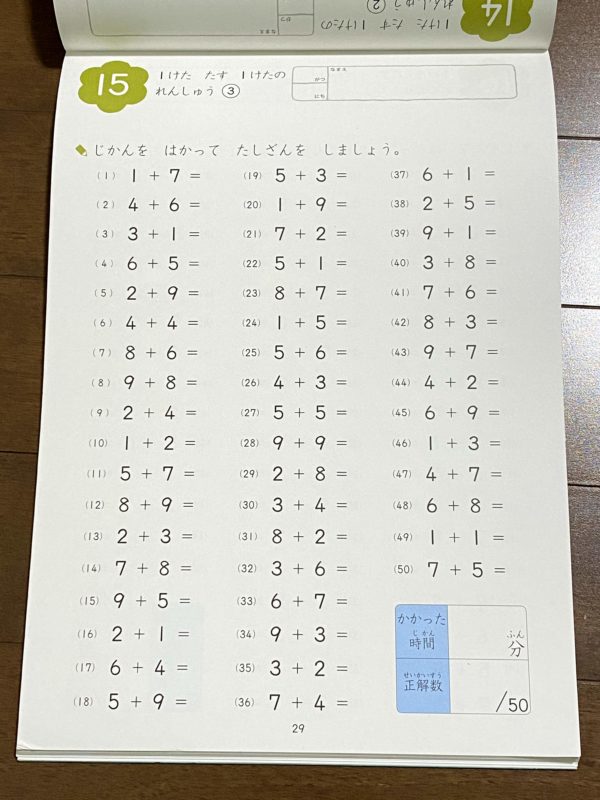 14
1けた たす 1けたの
れんしゅう ②
なまえ
がつ
15
1けた たす 1けたの
れんしゅう ③
なまえ
がつ
にち
じかんを はかって たしざんを しましょう。
(1) 1 + 7 =
(2) 4 + 6 =
(3) 3 + 1 =
(4) 6 + 5 =
(5) 2 + 9 =
(6) 4 + 4 =
(7) 8 + 6 =
(8) 9 + 8 =
(9) 2 + 4 =
(10) 1 + 2 =
(11) 5 + 7 =
(12) 8 + 9 =
(13) 2 + 3 =
(14) 7 + 8 =
(15) 9 + 5 =
(16) 2 + 1 =
(17) 6 + 4 =
(18) 5 + 9 =
(19) 5 + 3 =
(20) 1 + 9 =
(21) 7 + 2 =
(22) 5 + 1 =
(23) 8 + 7 =
(24) 1 + 5 =
(25) 5 + 6 =
(26) 4 + 3 =
(27) 5 + 5 =
(28) 9 + 9 =
(29) 2 + 8 =
(30) 3 + 4 =
(31) 8 + 2 =
(32) 3 + 6 =
(33) 6 + 7 =
(34) 9 + 3 =
(35) 3 + 2 =
(36) 7 + 4 =
(37) 6 + 1 =
(38) 2 + 5 =
(39) 9 + 1 =
(40) 3 + 8 =
(41) 7 + 6 =
(42) 8 + 3 =
(43) 9 + 7 =
(44) 4 + 2 =
(45) 6 + 9 =
(46) 1 + 3 =
(47) 4 + 7 =
(48) 6 + 8 =
(49) 1 + 1 =
(50) 7 + 5 =
かかった
じかん
時間
ふん
分
せいかいすう
正解数
/50
29